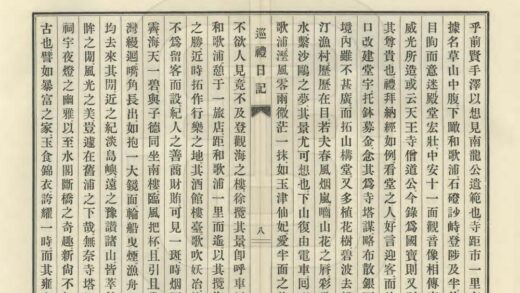 乎前賢手澤以想見南龍公遺範也寺距市一里
據名草山中腹下瞰和歌浦石磴訬峙登陟及半
目眴而意迷殿堂宏壯中安十一面觀音像相傳
威光所造或云天王寺僧道公今錄爲國寶則又
其尊貴也禮拜納經如例看堂之人好言迎客而
口改建堂宇托鉢募金念其爲寺塔謀略布散銀
境內雖不甚廣而拓山構堂又多植花樹碧波去
汀漁村歷歷在目若夫春風烟嵐嚙山花之脣彩
水繫沙鷗之夢其景尤可想也下山復由電車囘
歌浦溼風零雨微茫一抹如玉津仙妃愛半面之
巡禮日記
八
不欲人見竟不及登觀海之樓徐攬其景卽呼車
和歌浦憩于一旅店距和歌浦一里而遙以其攬
之勝近時拓作行樂之地其酒館樓臺歌吹妖冶
不爲留客而設紀人之善商財賄可見一斑時烟
霽海天一碧與子德同坐南樓臨風把杯且引且
灣縵迴嘴角長出如抱一大鏡面輪船曳煙漁舟
均去來其閒近之紀淡島嶼遠之豫讚諸山皆萃
眸之閒風光之美豈遽在舊浦之下哉無奈寺塔
祠宇夜燈之幽雅以至水閣斷橋之奇趣新尙不
古也譬如暴富之家玉食錦衣誇耀一時而其雍